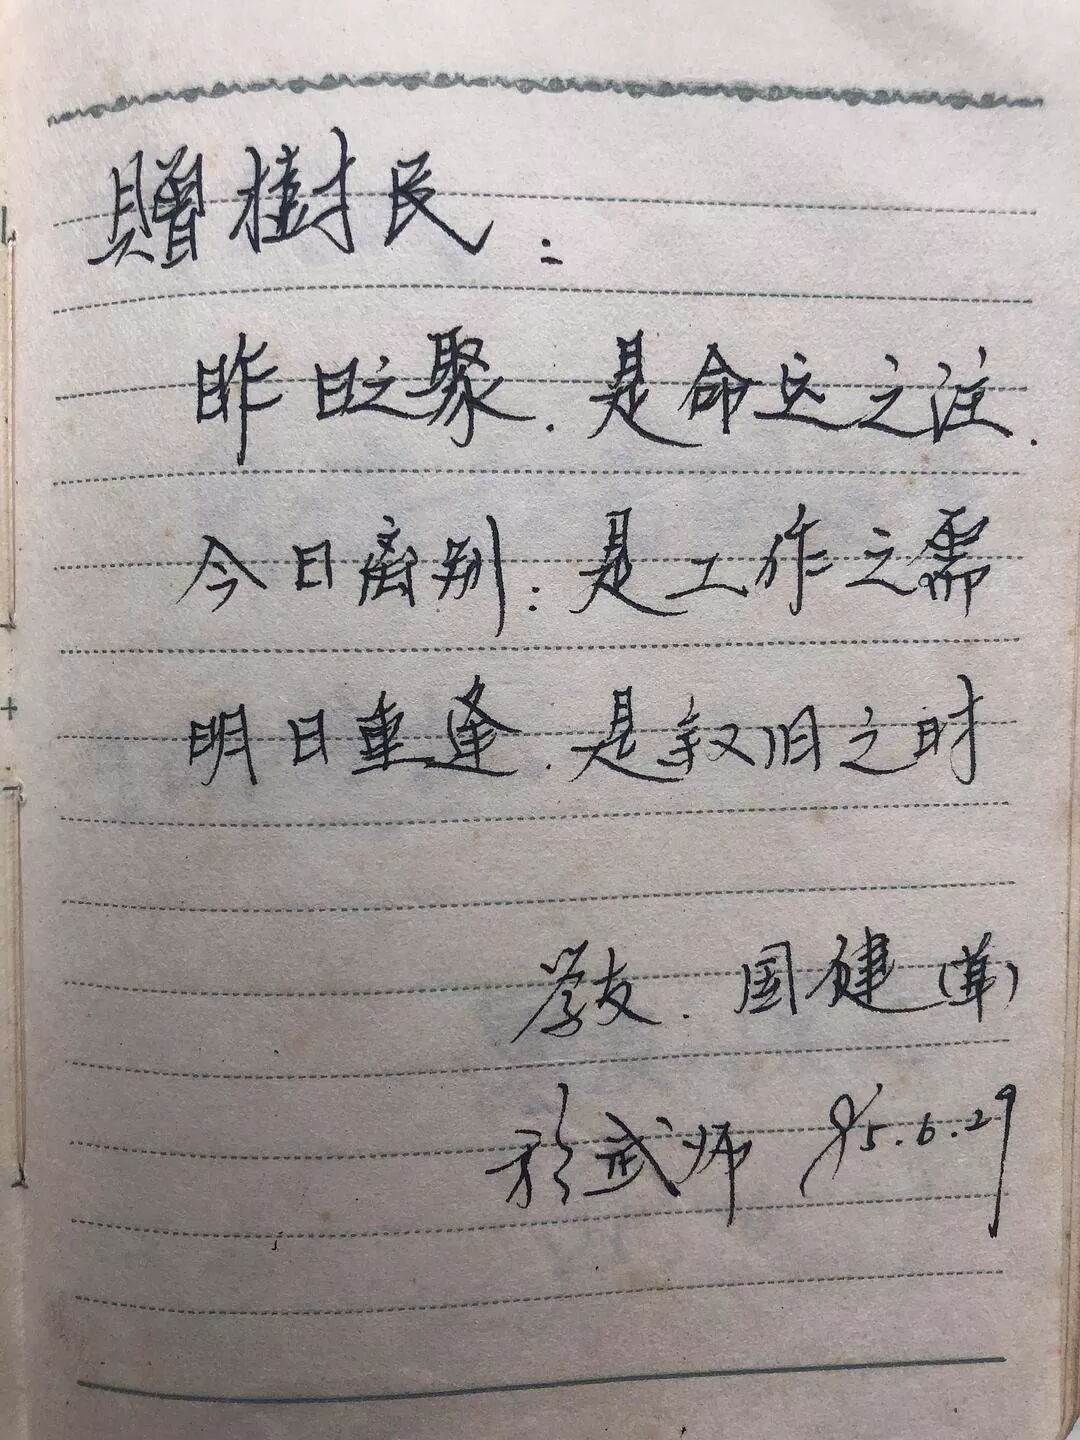 贈樹民：
昨日之聚．是命运之注．
今日离别：是工作之需
明日重逢．是叙旧之时
学友．国健(華)
於武师 95.6.29